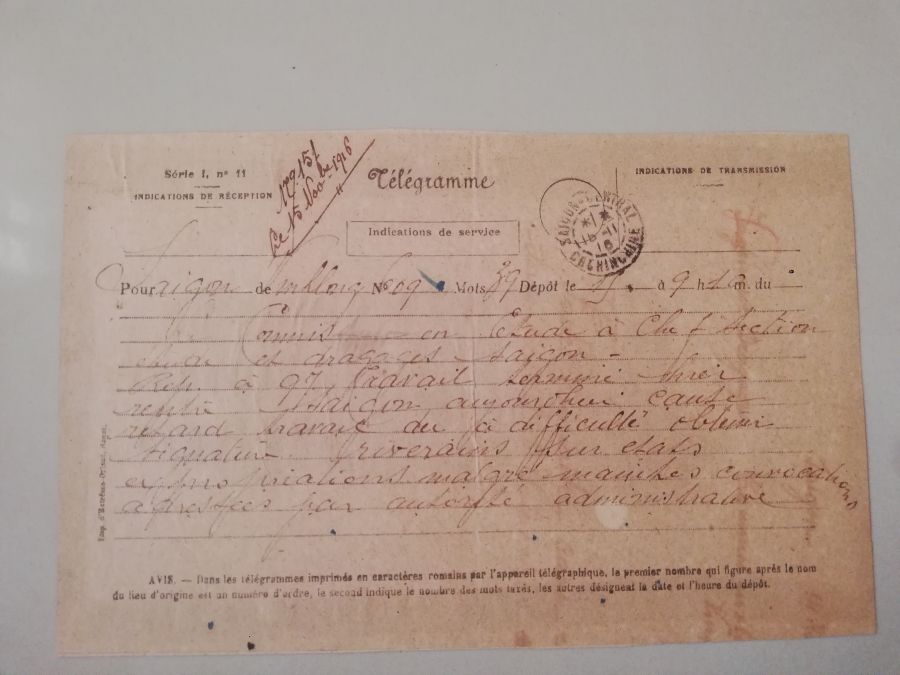 Série I, nº 11
INDICATIONS DE RÉCEPTION
17915/
Le 15 Novbre 1916
Télégramme
INDICATIONS DE TRANSMISSION
Indications de service
SAIGON-CENTRAL
15-11
16
COCHINCHINE
Pour Saigon de Vinhlong Nº 609 Mots 39 Dépôt le 15 à 9 h 10 m. du
Commis en Etude à Chef Section
et dragages - Saigon -
Rep. à 97 Travail terminé hier
rentre Saigon aujourd'hui cause
retard travail du à difficulté obtenir
signature riverains sur etats
expropriations malgré maintes convocations
adressées par autorité administrative
Imp. d'Extrême-Orient, Hanoi.
AVIS. — Dans les télégrammes imprimés en caractères romains par l'appareil télégraphique, le premier nombre qui figure après le nom
du lieu d'origine est un numéro d'ordre, le second indique le nombre des mots taxés, les autres désignent la date et l'heure du dépôt.